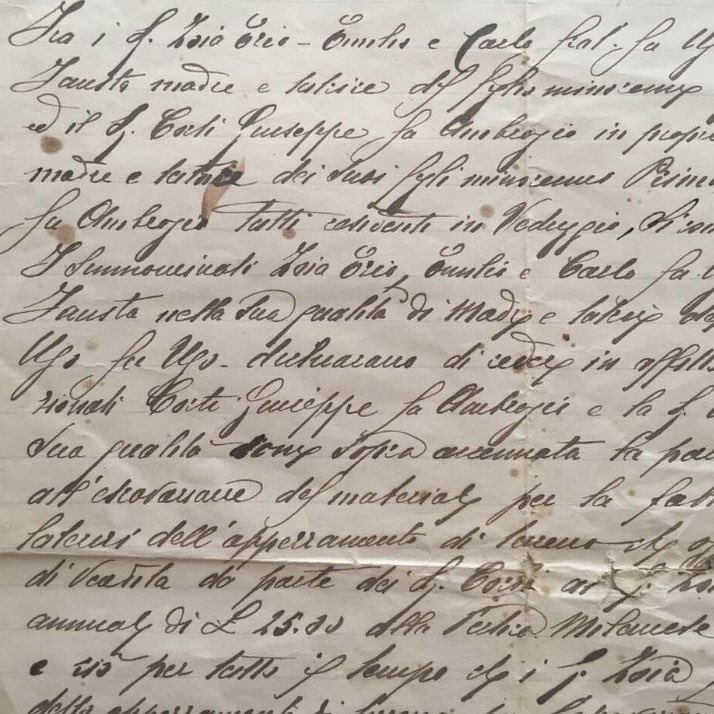 Tra i S. Zoia Ezio - Emilio e Carlo frat. fu Ug
Fausta madre e tutrice del figlio minorenne
ed il S. Corti Giuseppe fu Ambrogio in propri
madre e tutrice dei suoi figli minorenni
fu Ambrogio tutti residenti in Veduggio, si con
I summominati Zoia Ezio, Emilio e Carlo fu
Fausta nella sua qualità di Madre e tutrice
Ugo fu Ugo - dichiarano di cedere in affitt
zionati Corti Giuseppe fu Ambrogio e la S.
sua qualità come sopra accennata la par
all'escavazione del materiale per la fatt
laterizi dell'appezzamento di terreno che
di Vendita da parte dei S. Corti ai S. Zoi
annuale di £ 25.00 alla Pertica Milanese
e ciò per tutto il tempo che i S. Zoia
dello appezzamento di terreno